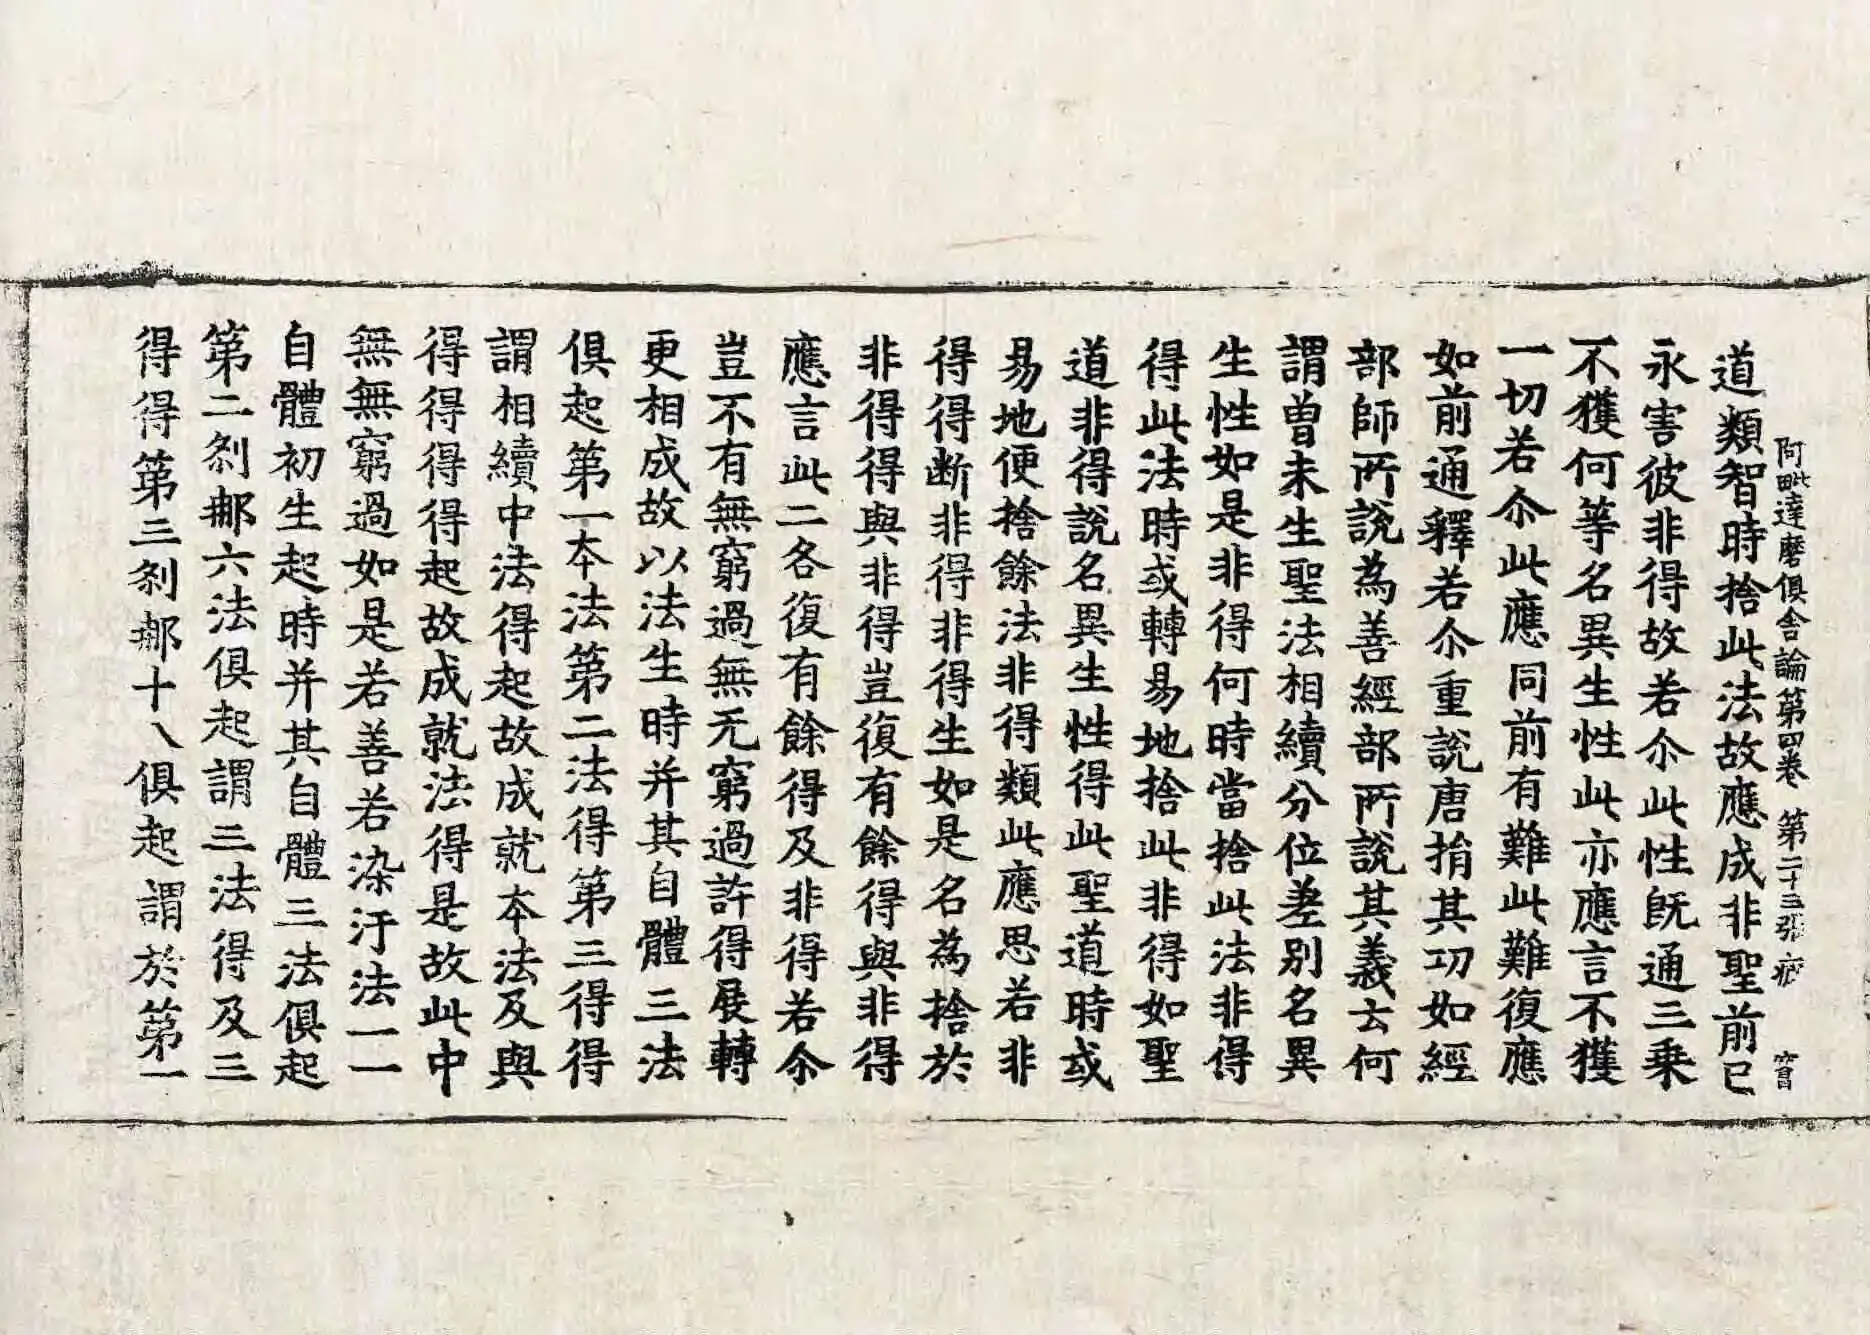 阿毗達磨俱舍論第四卷 第二十三張 疲 㝛
道類智時捨此法故應成非聖前已
永害彼非得故若尒此性旣通三乗
不獲何等名異生性此亦應言不獲
一切若尒此應同前有難此難復應
如前通釋若尒重說唐捐其功如經
部師所說為善經部所說其義云何
謂曽未生聖法相續分位差別名異
生性如是非得何時當捨此法非得
得此法時或轉易地捨此非得如聖
道非得說名異生性得此聖道時或
易地便捨餘法非得類此應思若非
得得断非得非得生如是名為捨於
非得得與非得豈復有餘得與非得
應言此二各復有餘得及非得若尒
豈不有無窮過無无窮過許得展轉
更相成故以法生時并其自體三法
俱起第一本法第二法得第三得得
謂相續中法得起故成就本法及與
得得得得起故成就法得是故此中
無無窮過如是若善若染汙法一一
自體初生起時并其自體三法俱起
第二剎那六法俱起謂三法得及三
得得第三剎那十八俱起謂於第一